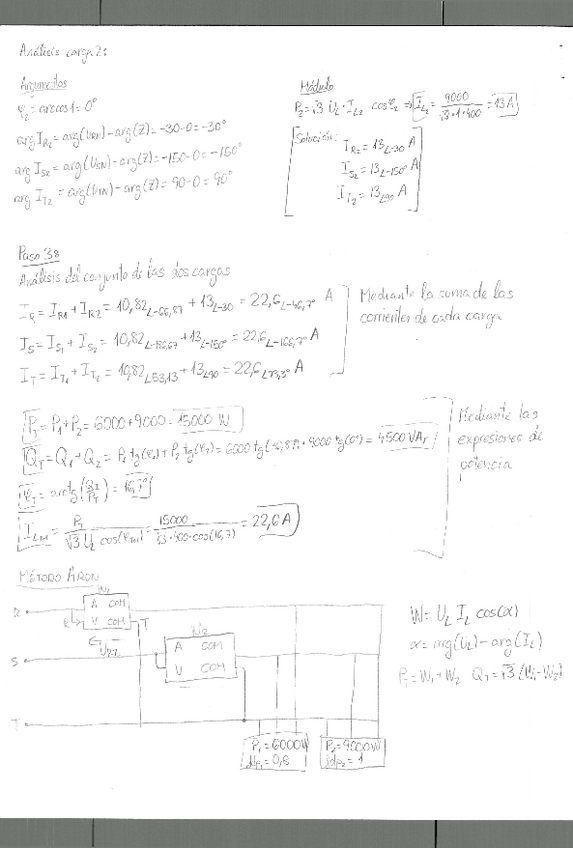 Análisis carga 2:
Argumentos
φ₂ = arccos 1 = 0°
arg I_R2 = arg(U_RN) - arg(Z) = -30-0 = -30°
arg I_S2 = arg(U_SN) - arg(Z) = -150-0 = -150°
arg I_T2 = arg(U_TN) - arg(Z) = 90-0 = 90°
Módulo
P₂ = √3 U_L · I_L2 cosφ₂ ⇒ I_L2 = 9000/(√3·1·400) = 13 A
Solución:
I_R2 = 13∠-30 A
I_S2 = 13∠-150° A
I_T2 = 13∠90 A
Paso 3B
Análisis del conjunto de las dos cargas
I_R = I_R1 + I_R2 = 10,82∠-66,87 + 13∠-30 = 22,6∠-46,7° A
I_S = I_S1 + I_S2 = 10,82∠-186,87 + 13∠-150° = 22,6∠-166,7° A
I_T = I_T1 + I_T2 = 10,82∠53,13 + 13∠90 = 22,6∠73,3° A
Mediante la suma de las
corrientes de cada carga
P_T = P₁ + P₂ = 6000 + 9000 = 15000 W
Q_T = Q₁ + Q₂ = P₁ tg(φ₁) + P₂ tg(φ₂) = 6000 tg(36,87) + 9000 tg(0°) = 4500 VAr
φ_T = arctg(Q_T/P_T) = 16,7°
I_LT = P_T/(√3 U_L cos(φ_T)) = 15000/(√3·400·cos(16,7)) = 22,6 A
Mediante las
expresiones de
potencia
MÉTODO ARON
W₁
R
A COM
V COM
R
T
S
W₂
A COM
V COM
T
P₁ = 6000W
fdp₁ = 0,8
P₂ = 9000W
fdp₂ = 1
W = U_L I_L cos(α)
α = arg(U_L) - arg(I_L)
P_T = W₁ + W₂ Q_T = √3 (W₁ - W₂)